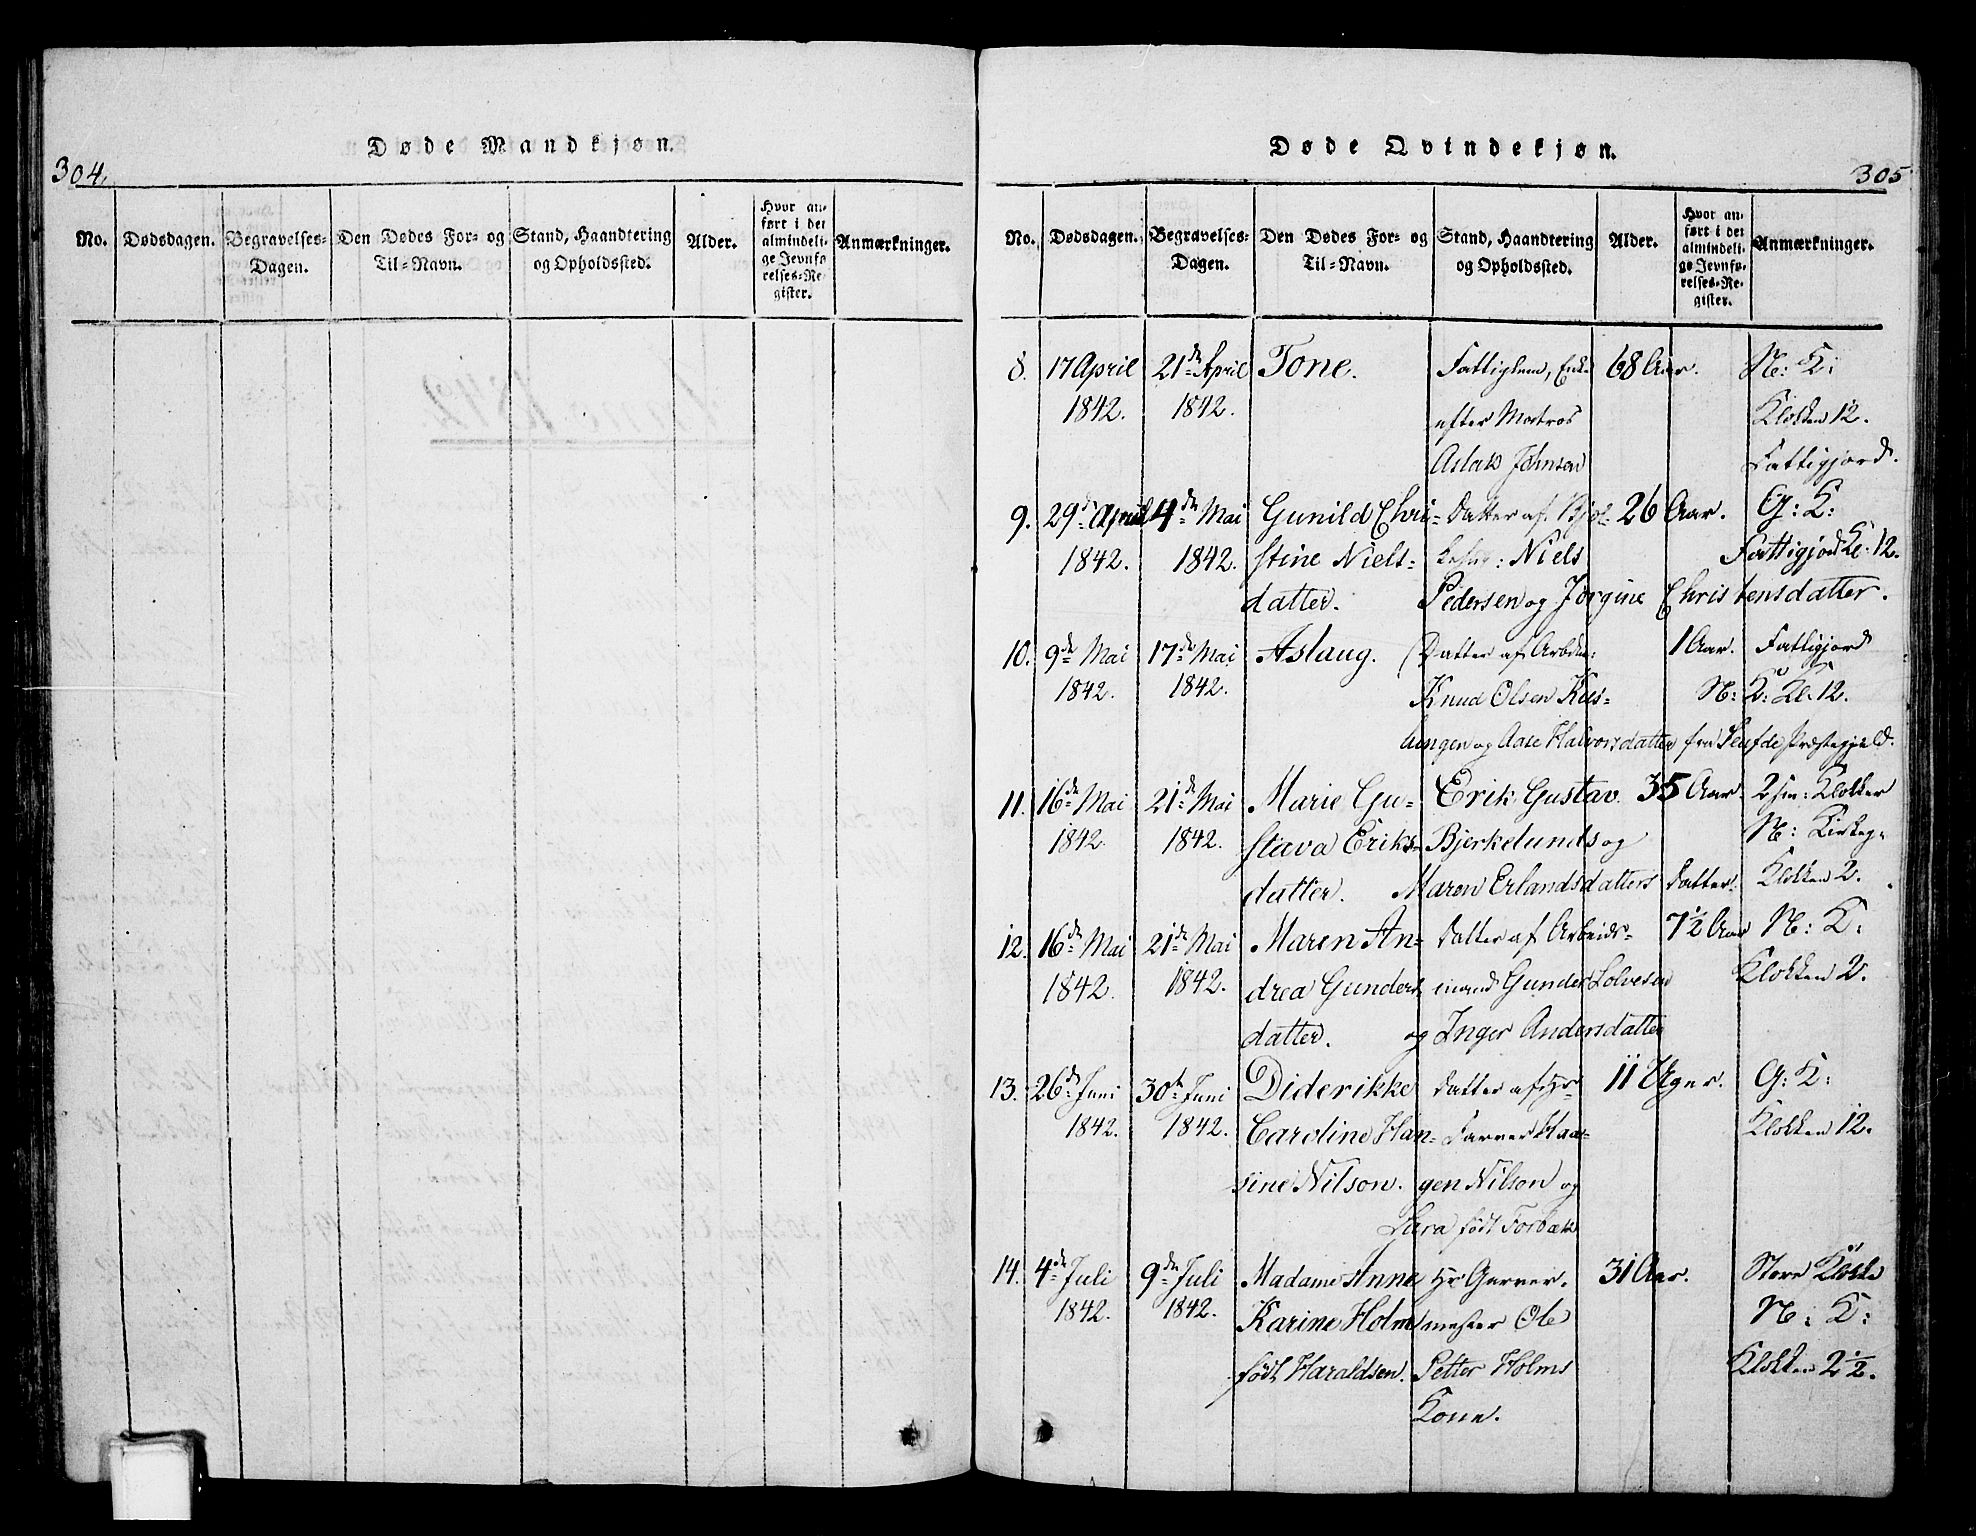 304.
Døde Mandkjøn.
No.
Dødsdagen.
Begravelses-
Dagen.
Den Dødes For- og
Til-Navn.
Stand, Haandtering
og Opholdssted.
Alder.
Hvor an-
ført i det
almindeli-
ge Jevnfø-
relses-Re-
gister.
Anmærkninger.
Døde Qvindekjøn.
305
No.
Dødsdagen.
Begravelses-
Dagen.
Den Dødes For- og
Til-Navn.
Stand, Haandtering
og Opholdssted.
Alder.
Hvor an-
ført i det
almindeli-
ge Jevnfø-
relses-Re-
gister.
Anmærkninger.
8. 17 April 21de April Tone. Fattiglem, Enke 68 Aar. N: K:
1842. 1842. efter Matros Klokken 12.
Aslak Johnsen Fattigjord.
9. 29de April 4de Mai Gunild Chri- Datter af 26 Aar. G: K:
1842. 1842. stine Niels- Niels Fattigjord Kl. 12.
datter. Pedersen og Jørgine Christensdatter.
10. 9de Mai 17de Mai Aslaug. Datter af Arbeidm: 1 Aar. Fattigjord
1842. 1842. Knud Olsen N: K: Kl. 12.
og Aase Halvorsdatter fra Præstegjeld.
11. 16de Mai 21de Mai Marie Gu- Erik Gustav 35 Aar. 2 Klokker
1842. 1842. stava Eriks- Bjerkelunds og N: Kirkeg-
datter. Maren Erlandsdatters Datter. Klokken 2.
12. 16de Mai 21de Mai Maren An- Datter af Arbeids- 7½ Aar N: K:
1842. 1842. drea Gunders- mand Gunder Solvesen Klokken 2.
datter. og Inger Andersdatter
13. 26de Juni 30te Juni Diderikke Datter af Hr 11 Uger. G: K:
1842. 1842. Caroline Han- Farver Haa- Klokken 12.
sine Nilson. gen Nilson og
Sara født Forbæk
14. 4de Juli 9de Juli Madame Anne Hr Garver- 31 Aar. Store Klokke
1842. 1842. Karine Holm mester Ole N: K:
født Haraldsen. Petter Holms Klokken 2½.
Kone.